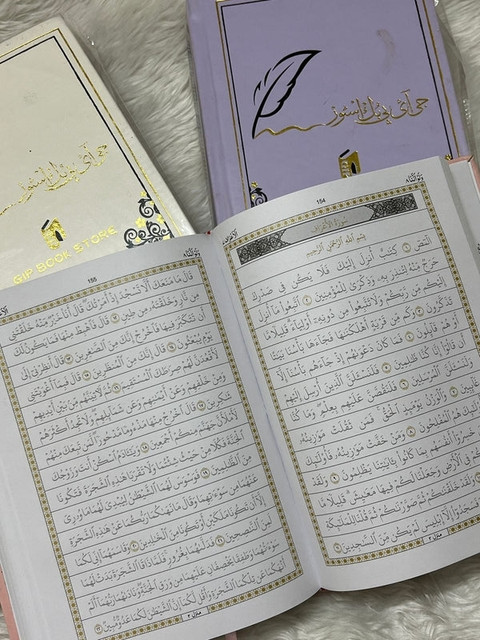 جي آئي پي بك استور
GIP BOOK STORE
جي آئي پي بك استور
154
سُورَةُ الْأَعْرَافِ
بِسْمِ اللَّهِ الرَّحْمَٰنِ الرَّحِيمِ
الٓمٓصٓ ١ كِتَٰبٌ أُنزِلَ إِلَيْكَ فَلَا يَكُن فِي صَدْرِكَ
حَرَجٌ مِّنْهُ لِتُنذِرَ بِهِ وَذِكْرَىٰ لِلْمُؤْمِنِينَ ٢ اتَّبِعُوا مَا أُنزِلَ
إِلَيْكُم مِّن رَّبِّكُمْ وَلَا تَتَّبِعُوا مِن دُونِهِ أَوْلِيَاءَ قَلِيلًا مَّا
تَذَكَّرُونَ ٣ وَكَم مِّن قَرْيَةٍ أَهْلَكْنَٰهَا فَجَاءَهَا بَأْسُنَا بَيَٰتًا
أَوْ هُمْ قَائِلُونَ ٤ فَمَا كَانَ دَعْوَىٰهُمْ إِذْ جَاءَهُم بَأْسُنَا إِلَّا
أَن قَالُوا إِنَّا كُنَّا ظَٰلِمِينَ ٥ فَلَنَسْـَٔلَنَّ الَّذِينَ أُرْسِلَ إِلَيْهِمْ
وَلَنَسْـَٔلَنَّ الْمُرْسَلِينَ ٦ فَلَنَقُصَّنَّ عَلَيْهِم بِعِلْمٍ وَمَا كُنَّا
غَائِبِينَ ٧ وَالْوَزْنُ يَوْمَئِذٍ الْحَقُّ فَمَن ثَقُلَتْ مَوَٰزِينُهُ
فَأُولَٰئِكَ هُمُ الْمُفْلِحُونَ ٨ وَمَنْ خَفَّتْ مَوَٰزِينُهُ فَأُولَٰئِكَ
الَّذِينَ خَسِرُوا أَنفُسَهُم بِمَا كَانُوا بِـَٔايَٰتِنَا يَظْلِمُونَ ٩ وَلَقَدْ
مَكَّنَّٰكُمْ فِي الْأَرْضِ وَجَعَلْنَا لَكُمْ فِيهَا مَعَٰيِشَ قَلِيلًا مَّا
تَشْكُرُونَ ١٠ وَلَقَدْ خَلَقْنَٰكُمْ ثُمَّ صَوَّرْنَٰكُمْ ثُمَّ قُلْنَا لِلْمَلَٰئِكَةِ
اسْجُدُوا لِـَٔادَمَ فَسَجَدُوا إِلَّا إِبْلِيسَ لَمْ يَكُن مِّنَ السَّٰجِدِينَ ١١
منزل ٢
155
قَالَ مَا مَنَعَكَ أَلَّا تَسْجُدَ إِذْ أَمَرْتُكَ قَالَ أَنَا خَيْرٌ مِّنْهُ خَلَقْتَنِي
مِن نَّارٍ وَخَلَقْتَهُ مِن طِينٍ ١٢ قَالَ فَاهْبِطْ مِنْهَا فَمَا يَكُونُ لَكَ
أَن تَتَكَبَّرَ فِيهَا فَاخْرُجْ إِنَّكَ مِنَ الصَّٰغِرِينَ ١٣ قَالَ أَنظِرْنِي إِلَىٰ
يَوْمِ يُبْعَثُونَ ١٤ قَالَ إِنَّكَ مِنَ الْمُنظَرِينَ ١٥ قَالَ فَبِمَا أَغْوَيْتَنِي
لَأَقْعُدَنَّ لَهُمْ صِرَٰطَكَ الْمُسْتَقِيمَ ١٦ ثُمَّ لَـَٔاتِيَنَّهُم مِّن بَيْنِ أَيْدِيهِمْ
وَمِنْ خَلْفِهِمْ وَعَنْ أَيْمَٰنِهِمْ وَعَن شَمَائِلِهِمْ وَلَا تَجِدُ أَكْثَرَهُمْ
شَٰكِرِينَ ١٧ قَالَ اخْرُجْ مِنْهَا مَذْءُومًا مَّدْحُورًا لَّمَن تَبِعَكَ مِنْهُمْ
لَأَمْلَأَنَّ جَهَنَّمَ مِنكُمْ أَجْمَعِينَ ١٨ وَيَٰـَٔادَمُ اسْكُنْ أَنتَ وَزَوْجُكَ
الْجَنَّةَ فَكُلَا مِنْ حَيْثُ شِئْتُمَا وَلَا تَقْرَبَا هَٰذِهِ الشَّجَرَةَ فَتَكُونَا
مِنَ الظَّٰلِمِينَ ١٩ فَوَسْوَسَ لَهُمَا الشَّيْطَٰنُ لِيُبْدِيَ لَهُمَا مَا وُورِيَ
عَنْهُمَا مِن سَوْءَٰتِهِمَا وَقَالَ مَا نَهَىٰكُمَا رَبُّكُمَا عَنْ هَٰذِهِ الشَّجَرَةِ
إِلَّا أَن تَكُونَا مَلَكَيْنِ أَوْ تَكُونَا مِنَ الْخَٰلِدِينَ ٢٠ وَقَاسَمَهُمَا إِنِّي لَكُمَا
لَمِنَ النَّٰصِحِينَ ٢١ فَدَلَّىٰهُمَا بِغُرُورٍ فَلَمَّا ذَاقَا الشَّجَرَةَ بَدَتْ لَهُمَا
سَوْءَٰتُهُمَا وَطَفِقَا يَخْصِفَانِ عَلَيْهِمَا مِن وَرَقِ الْجَنَّةِ وَنَادَىٰهُمَا رَبُّهُمَا أَلَمْ
أَنْهَكُمَا عَن تِلْكُمَا الشَّجَرَةِ وَأَقُل لَّكُمَا إِنَّ الشَّيْطَٰنَ لَكُمَا عَدُوٌّ مُّبِينٌ ٢٢
منزل ٢